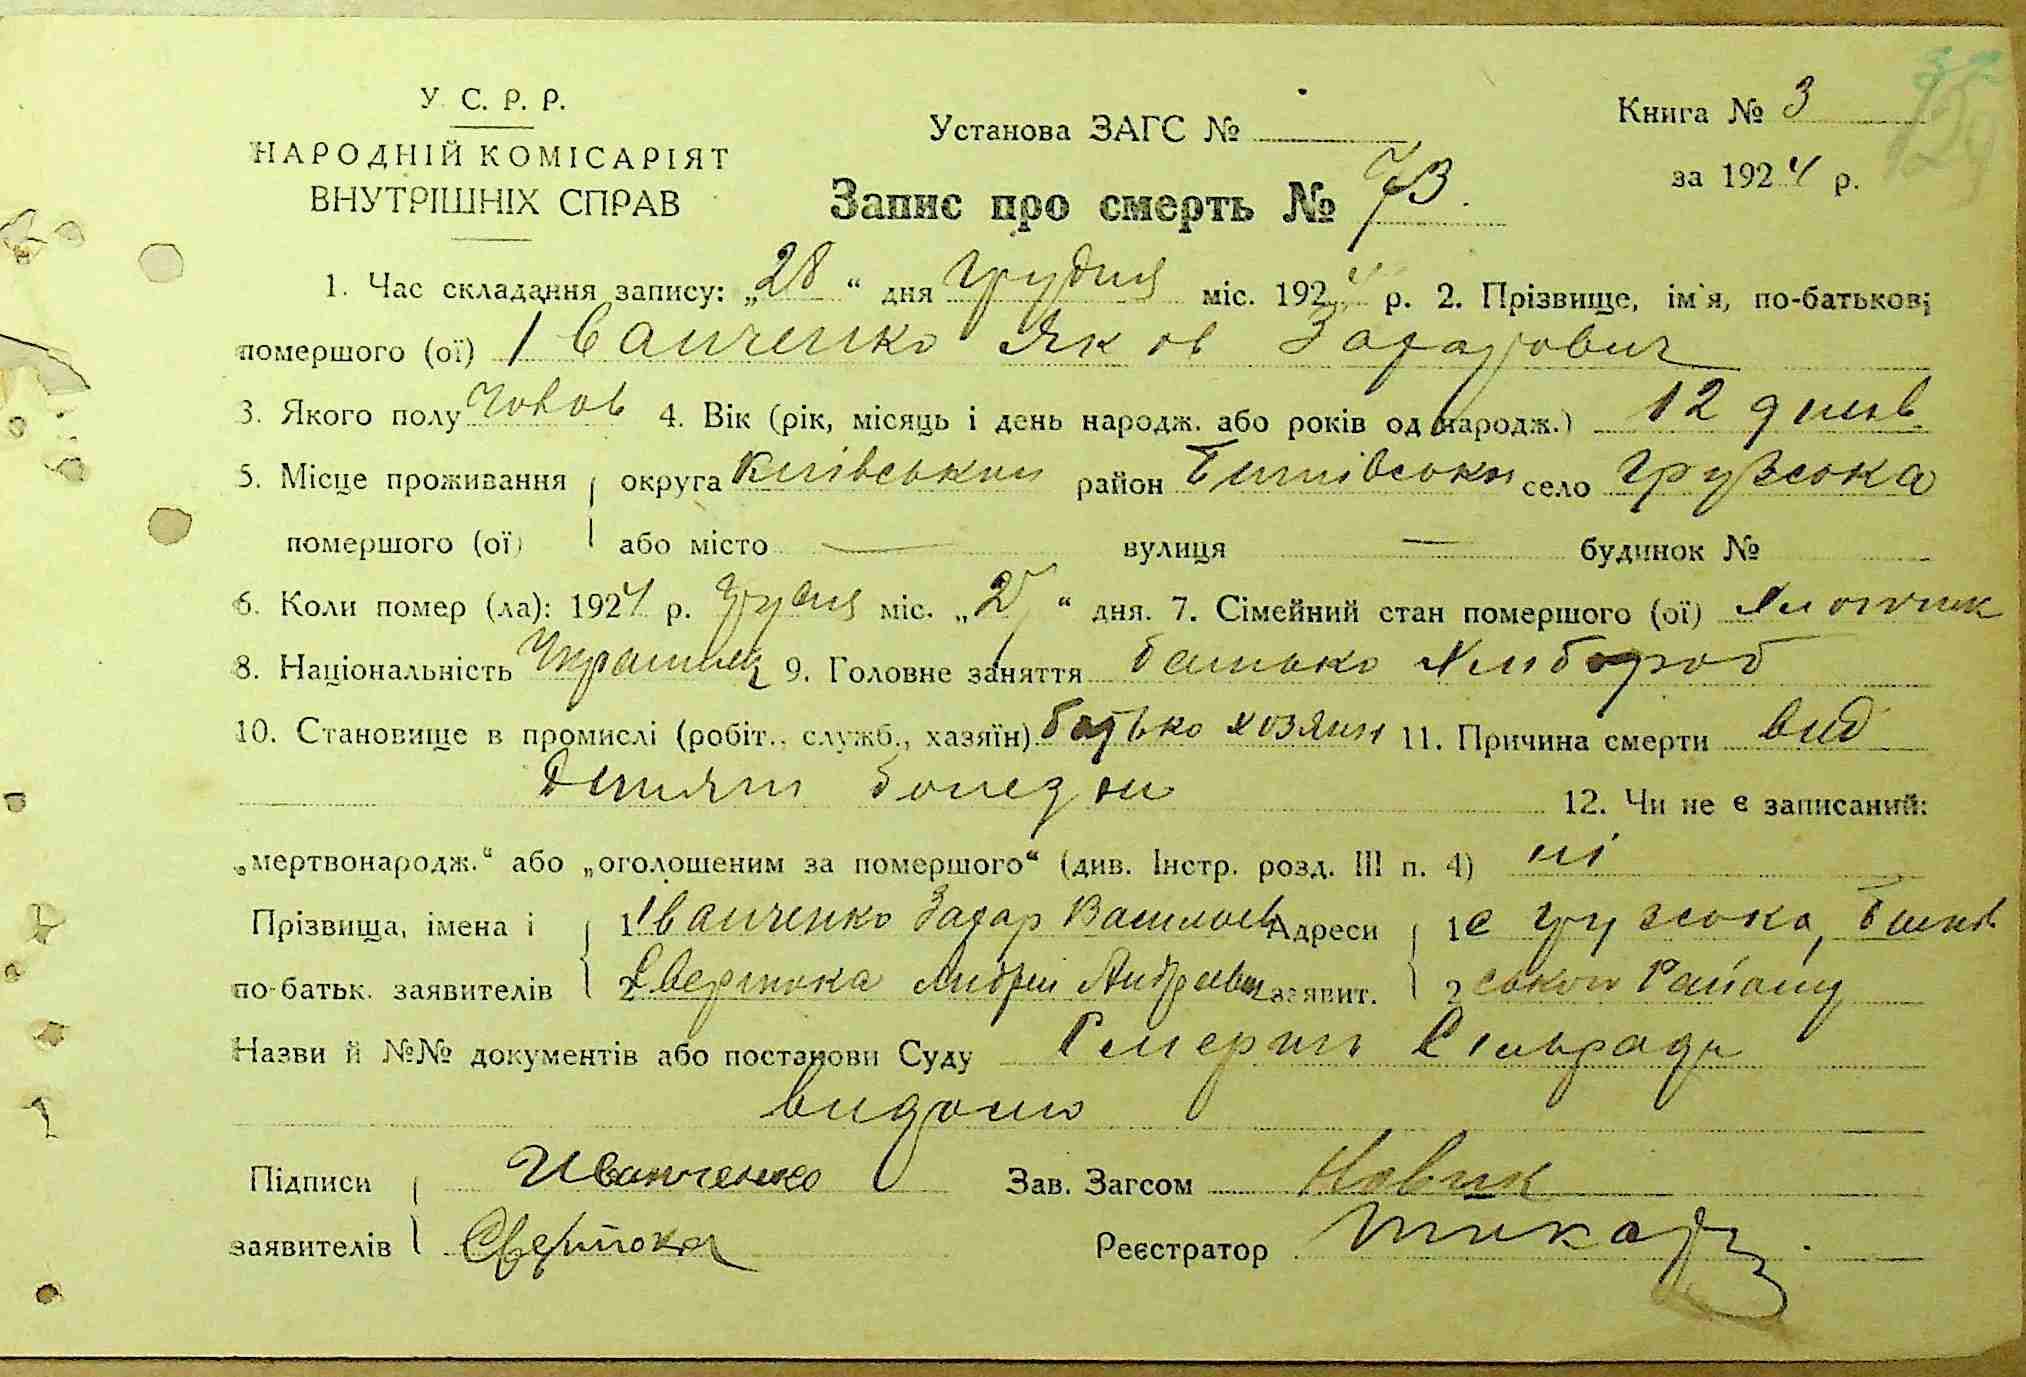 У. С. Р. Р.
НАРОДНІЙ КОМІСАРІЯТ
ВНУТРІШНІХ СПРАВ
Установа ЗАГС №
Запис про смерть № 73.
Книга № 3
за 1924 р.
1. Час складання запису: „28“ дня Грудня міс. 1924 р. 2. Прізвище, ім'я, по-батькові
помершого (ої) Іванченко Яков Захарович
3. Якого полу Чолов 4. Вік (рік, місяць і день народж. або років од народж.) 12 днів
5. Місце проживання округа Київський район село Грузська
помершого (ої) або місто — вулиця — будинок №
6. Коли помер (ла): 1924 р. Грудня міс. „27“ дня. 7. Сімейний стан помершого (ої) Хлопчик
8. Національність 9. Головне заняття батько Хлибороб
10. Становище в промислі (робіт., служб., хазяїн) батько хозяин 11. Причина смерти вид
болезни 12. Чи не є записаний:
„мертвонародж.“ або „оголошеним за помершого“ (див. Інстр. розд. III п. 4) ні
Прізвища, імена і 1 Іванченко Захар Адреси 1 с Грузська,
по-батьк. заявителів 2 Андрій заявит. 2 Району
Назви й №№ документів або постанови Суду Сільради
Підписи Иванченко Зав. Загсом Новик
заявителів Реєстратор